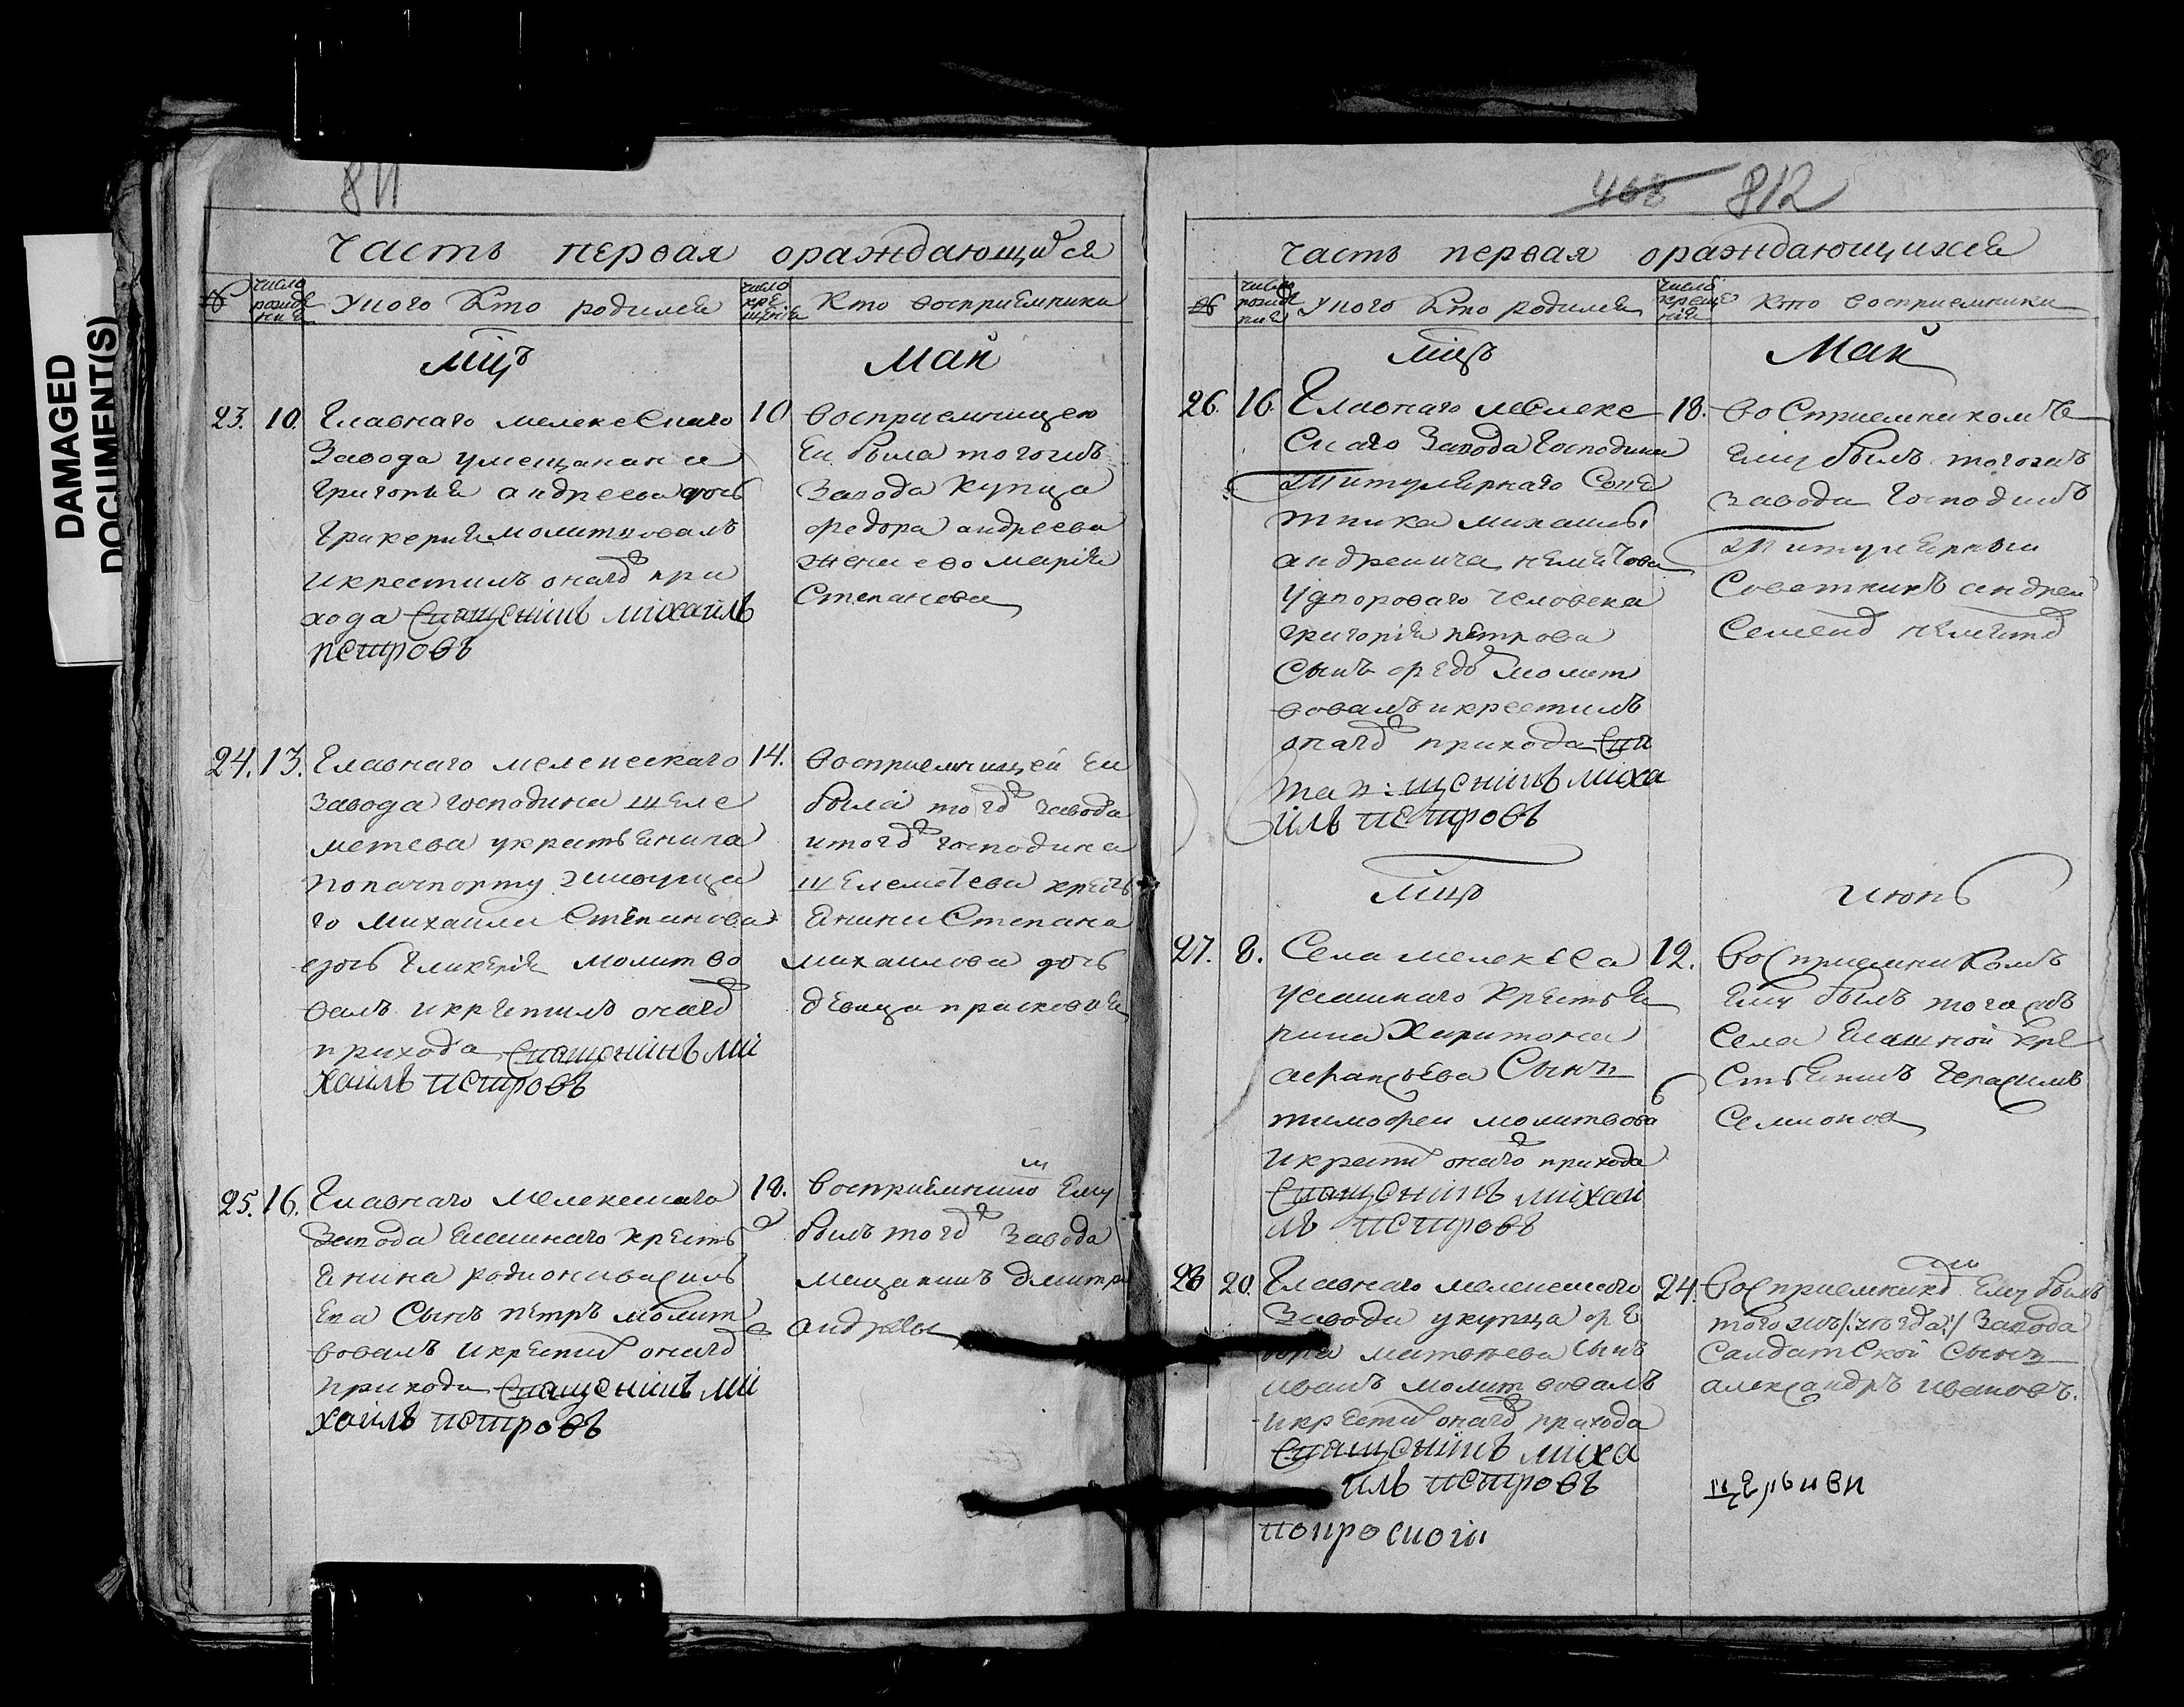 DAMAGED
DOCUMENT(S)
811
Часть первая ораждающихся
№ число рожде ния У кого кто родился число кре щения Кто восприемники
мцъ Май
23. 10. Главнаго мелекескаго
Завода умещанина
григорья андреева дочь
Гликерия молитвовалъ
и крестилъ онаго при
хода священникъ михаилъ
петровъ
10 восприемницею
Ей была тогожъ
завода купца
федора андреева
жена ево марья
Степанова
24. 13. Главнаго мелекескаго
Завода господина шере
метева укрестьянина
попачпорту живуща
го михаила Степанова
дочь Гликерия молитво
валъ и крестилъ онаго
прихода священникъ ми
хаилъ петровъ
14. восприемницей Ей
была того завода
итого господина
шереметева кресть
янина Степана
михаилова дочь
девица прасковья
25. 16. Главнаго мелекескаго
Завода ясашнаго кресть
янина родиона василь
ева Сынъ петръ молит
вовалъ и крестил онаго
прихода священникъ ми
хаилъ петровъ
18. восприемником Ему
былъ того завода
мещанинъ дмитри
андреевъ
468 812
часть первая ораждающихся
№ число рожде ния У кого кто родился число креще ния Кто восприемники
мцъ Май
26. 16. Главнаго мелеке
Скаго Завода Господина
Титулярнаго Сове
тника михаила
андреича
Удвороваго человека
григорья петрова
Сынъ федо молит
вовалъ и крестилъ
онаго прихода свя
щенникъ миха
илъ петровъ
18. восприемникомъ
Ему былъ тогожъ
завода Господинъ
Титулярный
Советникъ андрей
Семено
мцъ июнь
27. 8. Села мелекеса
Уясашнаго крестья
нина Харитона
Сынъ
тимофеи молитвова
и крестил онаго прихода
священникъ михаи
лъ петровъ
12. восприемникомъ
Ему былъ тогожъ
Села ясашной кре
стьянинъ Герасимъ
Семионов
28 20. Главнаго мелекескаго
Завода укупца фе
дора матвеева сынъ
иванъ молитвовалъ
и крестил онаго прихода
священникъ миха
илъ петровъ
24. восприемнико Ему былъ
тогожъ Завода
Салдатской Сынъ
александръ ивановъ.